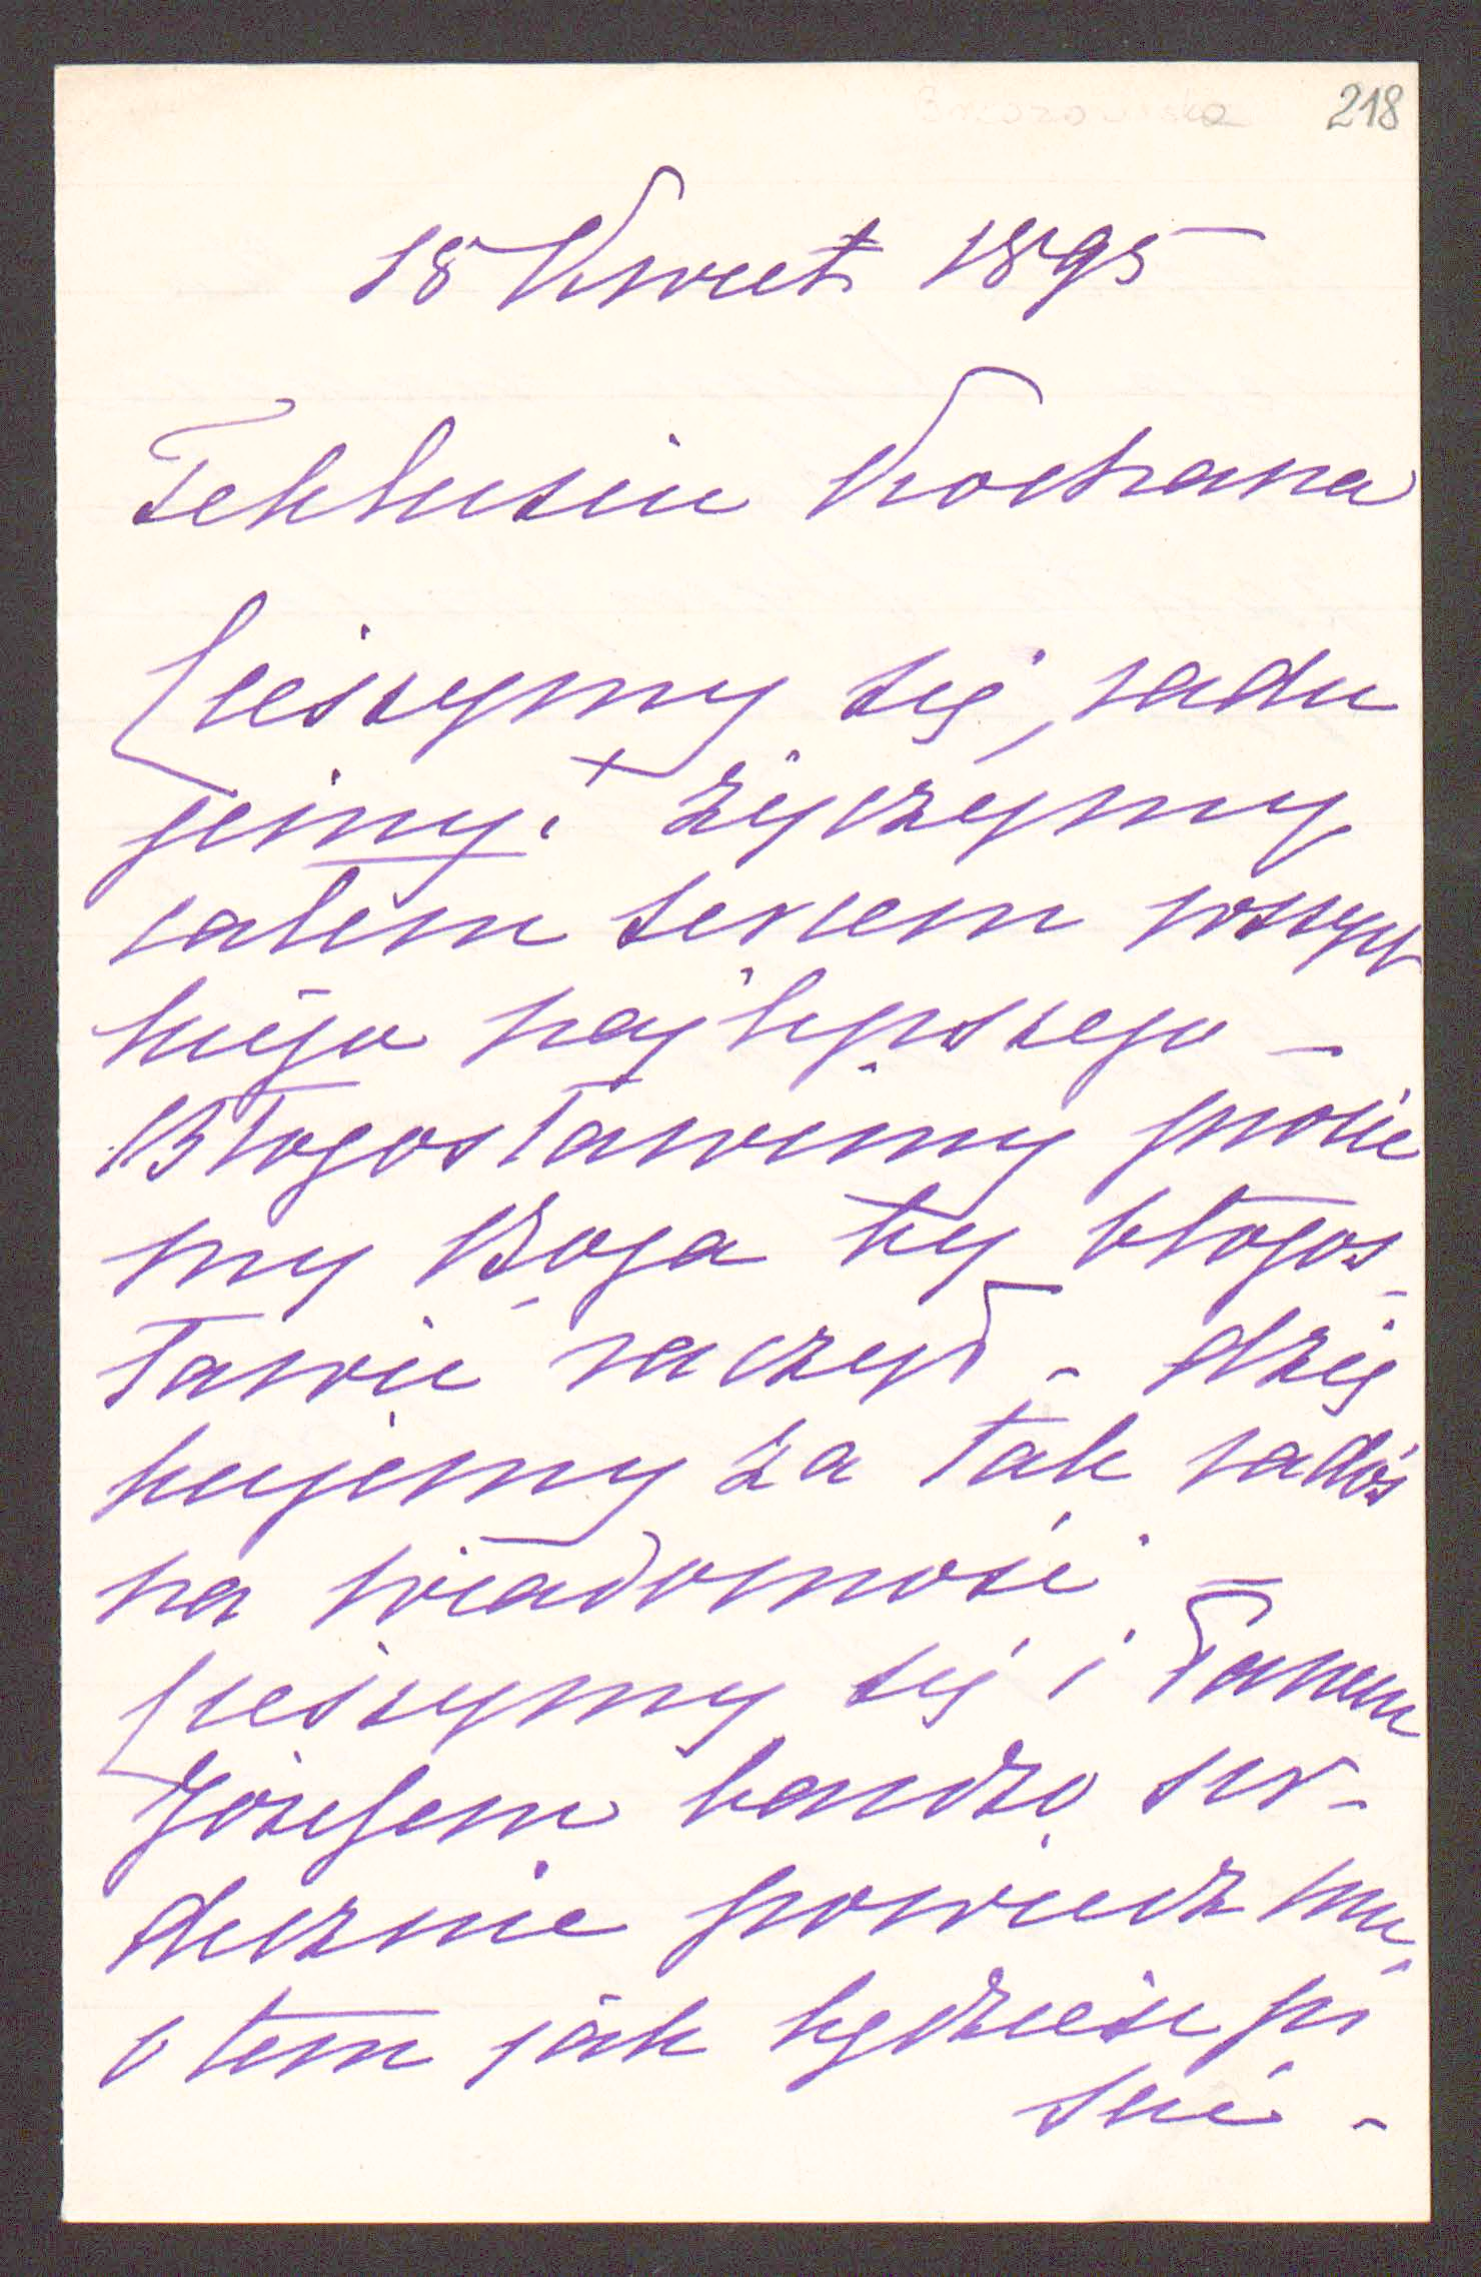 Brzozowska 218
18 Kwiet 1895
Teklusiu Kochana
Cieszymy się, radu
jemy i życzymy
całem sercem wszyst
kiego najlepszego —
Błogosławimy prosie
my Boga by błogos-
ławić raczył - dzię
kujemy za tak rados
na wiadomość
Cieszymy się i Panem
Józefem bardzo ser-
decznie powiedz mu
o tem jak będziesz pi
sać -